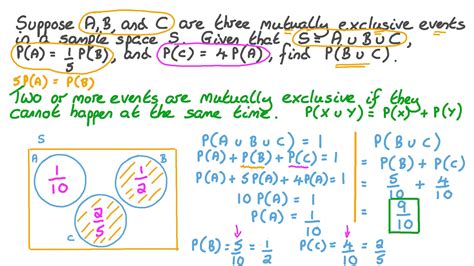 Suppose A, B, and C are three mutually exclusive events
in a sample space S. Given that S = A ∪ B ∪ C,
P(A) = 1/5 P(B), and P(C) = 4P(A), find P(B ∪ C).
5P(A) = P(B)
Two or more events are mutually exclusive if they
cannot happen at the same time. P(X ∪ Y) = P(X) + P(Y)
S
A
1/10
B
1/2
C
2/5
P(A ∪ B ∪ C) = 1
P(A) + P(B) + P(C) = 1
P(A) + 5P(A) + 4P(A) = 1
10P(A) = 1
P(A) = 1/10
P(B) = 5/10 = 1/2
P(C) = 4/10 = 2/5
P(B ∪ C)
= P(B) + P(C)
= 5/10 + 4/10
= 9/10